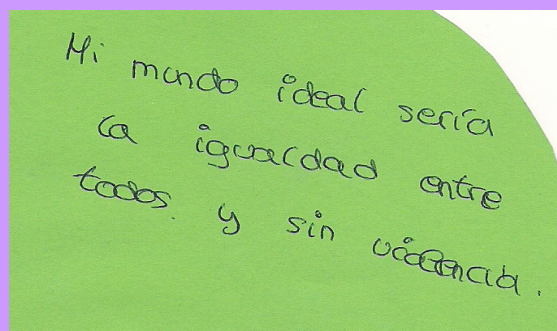 Mi mundo ideal sería
la igualdad entre
todos y sin violencia.